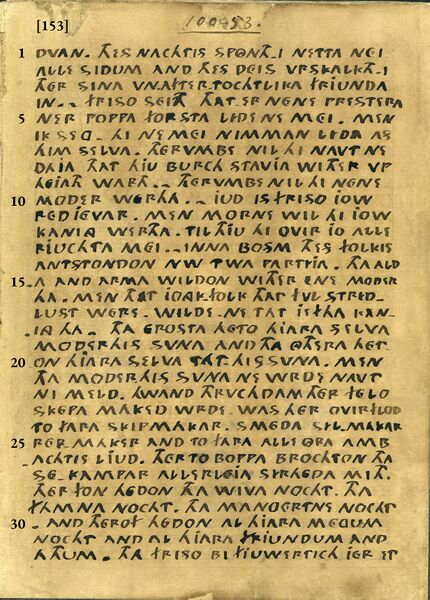 [153]
100453.
1 DVAN. THES NACHTIS SPONTH-I NETTA NEI
ALLE SIDUM AND THES DEIS VRSKALKTH-I
THER SINA VNAFTER TOCHTLIKA FRIUNDA
IN.. FRISO SEITH THAT ER NENE PRESTERA
5 NER POPPA FORSTA LIDENS MEI. MEN
IK SED. HI NE MEI NIMMAN LIDA AS
HIM SELVA. THERVMBE NIL HI NAVT NE
DAJA THAT HIU BURCH STAVIA WITHER VP
HEJATH WARTH.. THERVMBE NIL HI NENE
10 MODER WERHA.. JUD IS FRISO JOW
RED JEVAR. MEN MORNE WIL HI JOW
KANING WERTHA. TIL THIU HI OVIR JO ALLE
RIUCHTA MEI.. INNA BOSM THES FOLKIS
ANTSTONDON NW TWA PARTYJA. THA ALD
15 A AND ARMA WILDON WITHER ENE MODER
HA. MEN THAT JONGKFOLK THAT FVL STRID_
LUST WERE. WILDE_ NE TAT JEFTHA KAN_
ING HA.. THA EROSTA HETON HJARA SELVA
MODERHIS SUNA AND THA OTHERA HET
20 ON HJARA SELVA TAT.HIS SUNA. MEN
THA MODERHIS SUNA NE WRDE NAVT
NI MELD. HWAND THRUCHDAM THER FELO
SKEPA MAKED WRDE. WAS HER OVIRFLOD
TO FARA SKIPMAKAR. SMEDA SIL.MAKAR
25 REP.MAKER AND TO FARA ALLE OTHRA AMB
ACHTIS LIUD. THERTO BOPPA BROCHTON THA
SE_ KAMPAR ALLERLEJA SYRHEDA MITH.
THER FON HEDON THA WIVA NOCHT. THA
FAMNA NOCHT. THA MANGERTNE NOCHT
30 . AND THEROF HEDON AL HJARA MEGUM
NOCHT AND AL HJARA FRJUNDUM AND
ATHUM. THA FRISO BI FJUWERTICH JER ET